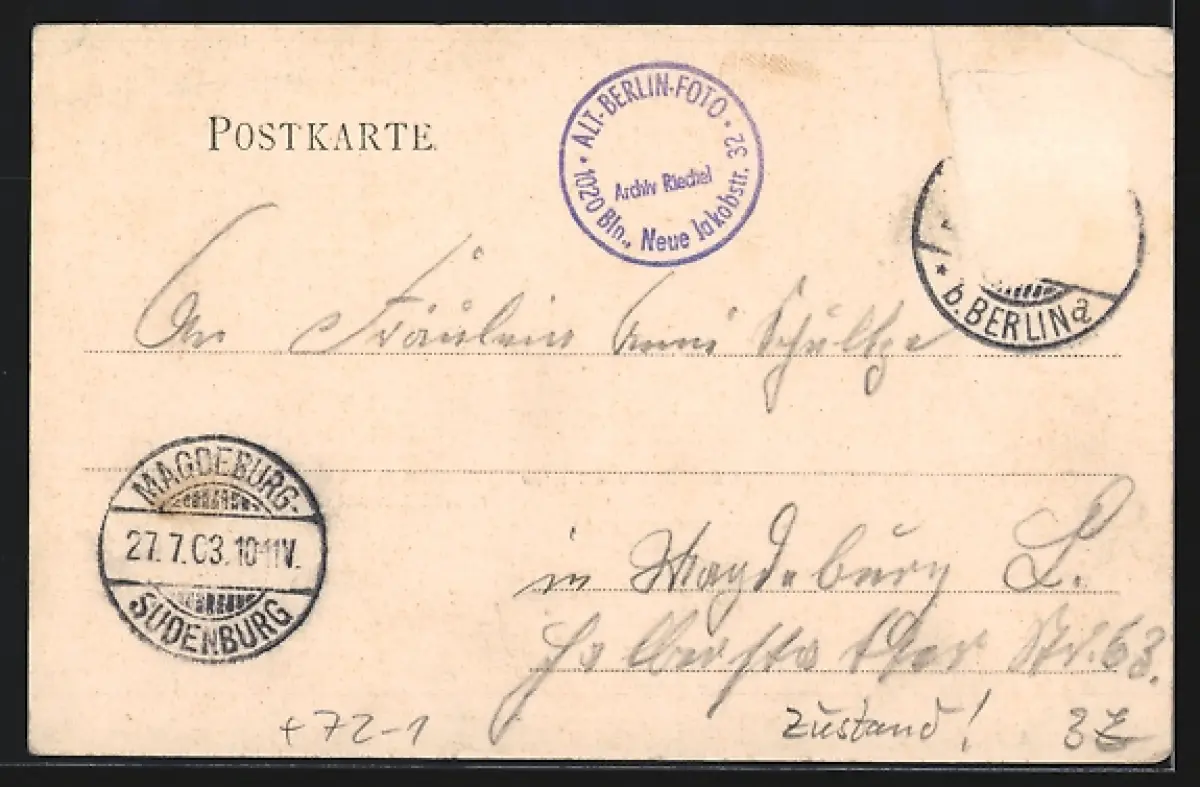 POSTKARTE.
ALT-BERLIN-FOTO • 32
Archiv Riechel
• 1020 Bln., Neue Jakobstr.
* b. BERLIN a
An Fräulein Anni Schultze
MAGDEBURG-
27.7.03.10-11V.
SUDENBURG
in Magdeburg S.
Halberstädter Str. 63.
+72-1
Zustand!